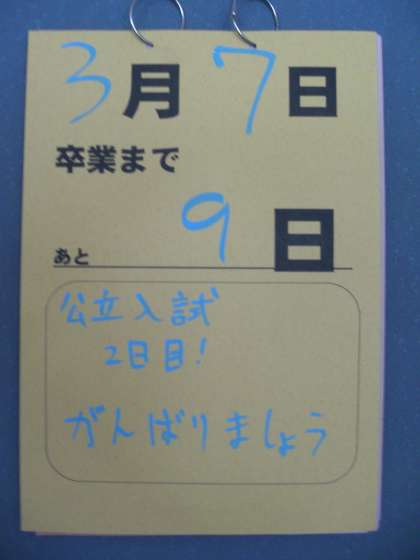 3月7日
卒業まで
あと 9日
公立入試
2日目!
がんばりましょう